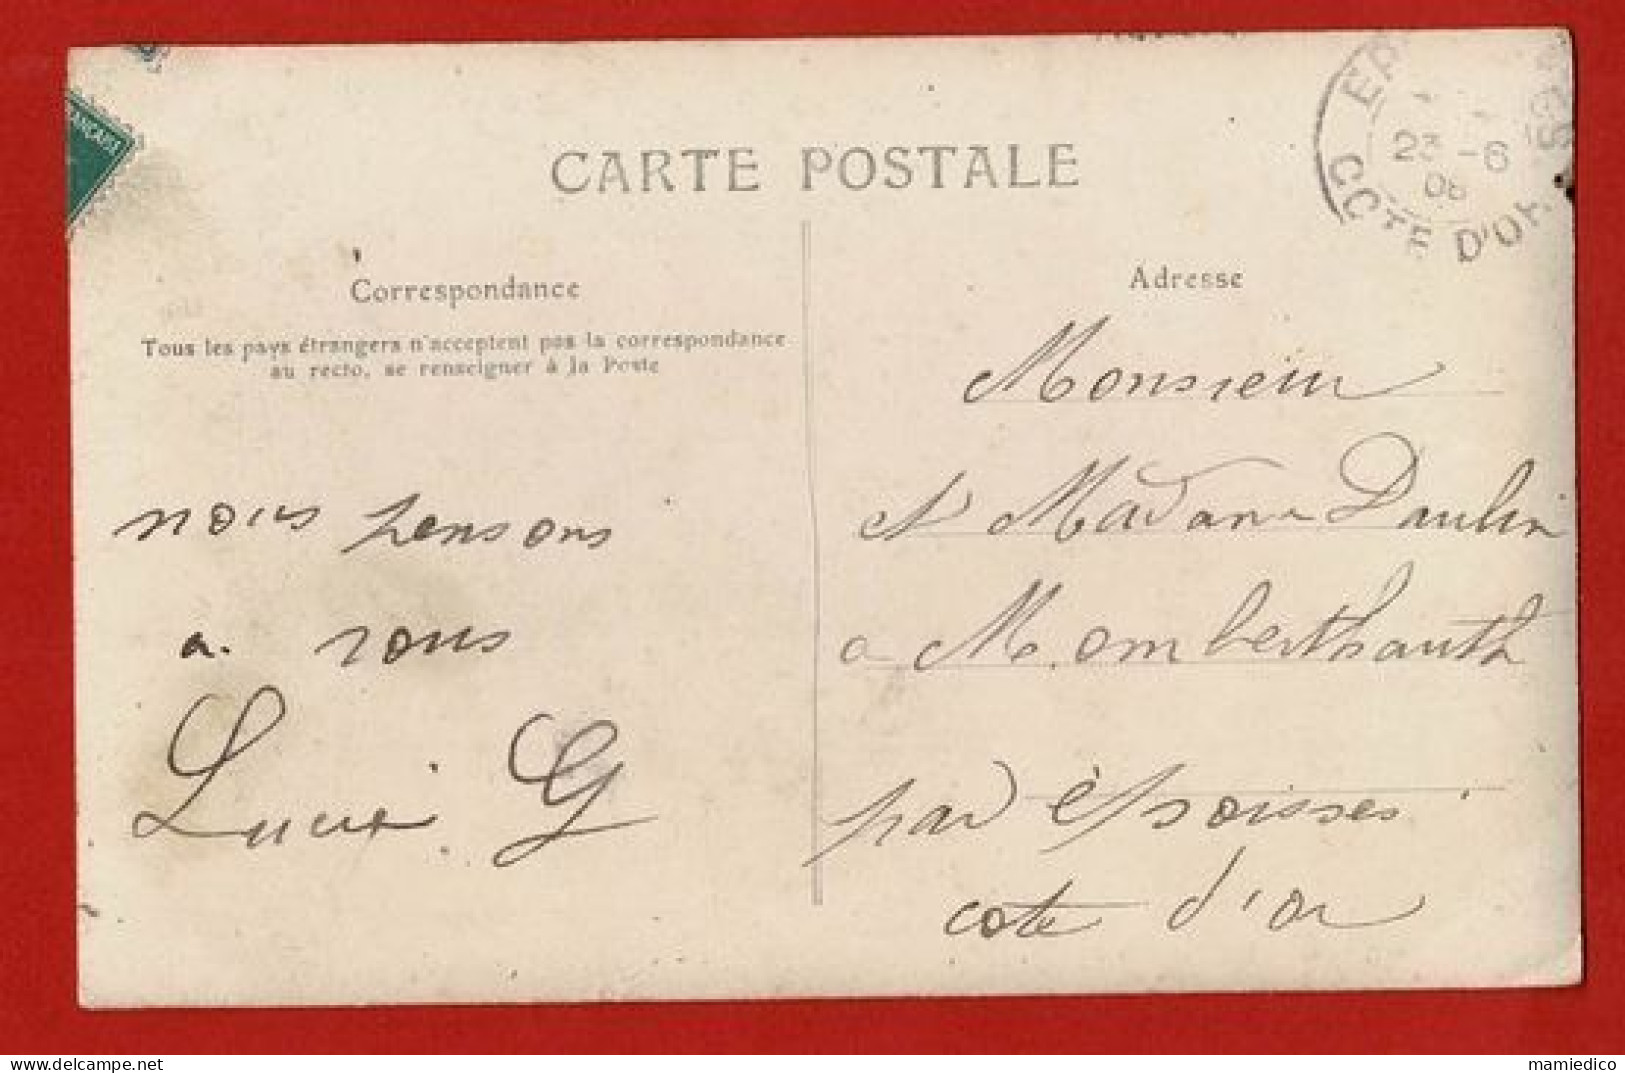 CARTE POSTALE
Correspondance
Tous les pays étrangers n'acceptent pas la correspondance
au recto, se renseigner à la Poste
nous pensons
a. vous
Lucie G
Adresse
Monsieur
et Madame Paulin
a Momberthauth
par époisses
cote d'or
23 -6
08
COTE D'OR
delcampe.net
mamiedico